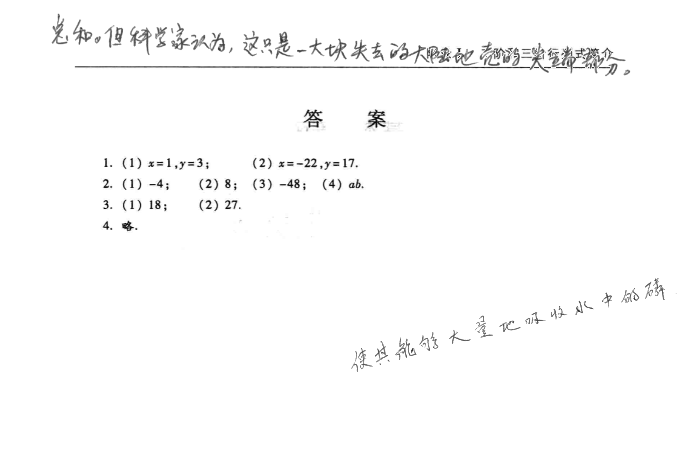 总和。但科学家认为，这只是一大块失去的大陆地壳的尖端部分。
答 案
1. (1) x=1,y=3; (2) x=-22,y=17.
2. (1) -4; (2) 8; (3) -48; (4) ab.
3. (1) 18; (2) 27.
4. 略.
使其能够大量地吸收水中的磷